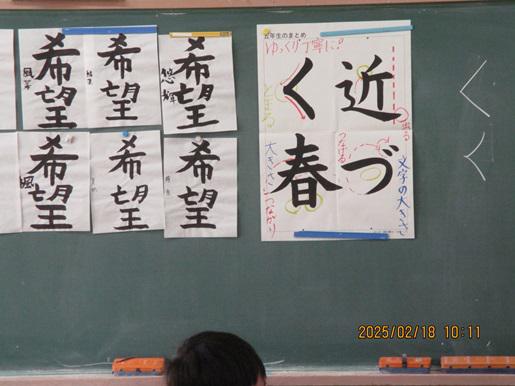 希望
希望
希望
希望
希望
希望
五年生のまとめ
ゆっくり丁寧に!
近づ
く春
とまる
つなげる
出る
大きさ
つながり
文字の大きさ
く
く
2025/02/18 10:11